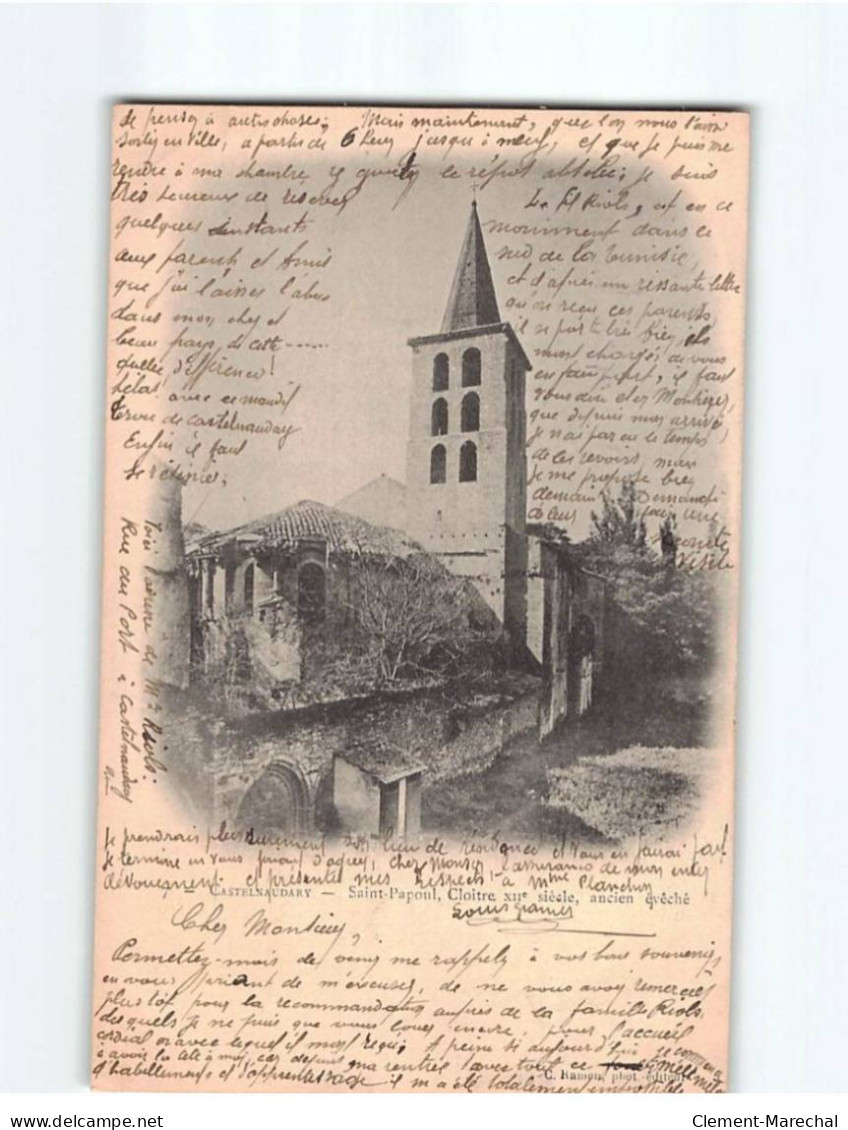 Cher Monsieur,
Permettez-moi de venir me rappeler à vos bons souvenirs
en vous priant de m'excuser, de ne vous avoir remercié
plus tôt pour la recommandation auprès de la famille Riols
desquels je ne puis que vous louer encore, pour l'accueil
cordial avec lequel il m'ont reçu. A peine si aujourd'hui je commence
à avoir la tête à moi, car depuis ma rentrée avec tout ce
d'habillements et d'apprentissage il m'a été totalement impossible
de penser à autre chose. Mais maintenant, que l'on nous laisse
sortir en ville, à partir de 6 heures jusqu'à neuf, et que je puis me
rendre à ma chambre et goûter le repos absolu, je suis
très heureux de réserver
quelques instants
aux parents et amis
que j'ai laissés là bas
dans mon cher et
beau pays, de cette
quelle différence!
hélas avec ce maudit
de Castelnaudary
Enfin il faut
se résigner
Le fils Riols, est en ce
moment dans le
sud de la Tunisie,
et d'après une lettre
qu'on reçu ces parents,
il se porte très bien, ils
m'ont chargés de vous
en faire part, il faut
vous dire cher Monsieur,
que depuis mon arrivée
je n'ai pas eu le temps
de les revoir, mais
je me propose bien
demain Dimanche
de leur une
seconde
visite
Voici l'adresse de Mr Riols
Rue du Port à Castelnaudary
Je prendrais plus
je termine en vous priant d'agréer, cher Monsieur, l'assurance de mon entier
dévouement et présenter mes respects à Mme Planchon
CASTELNAUDARY — Saint-Papoul, Cloitre XIIe siècle, ancien évêché
Louis
C. Ramon, phot.-éditeur
Clement-Marechal